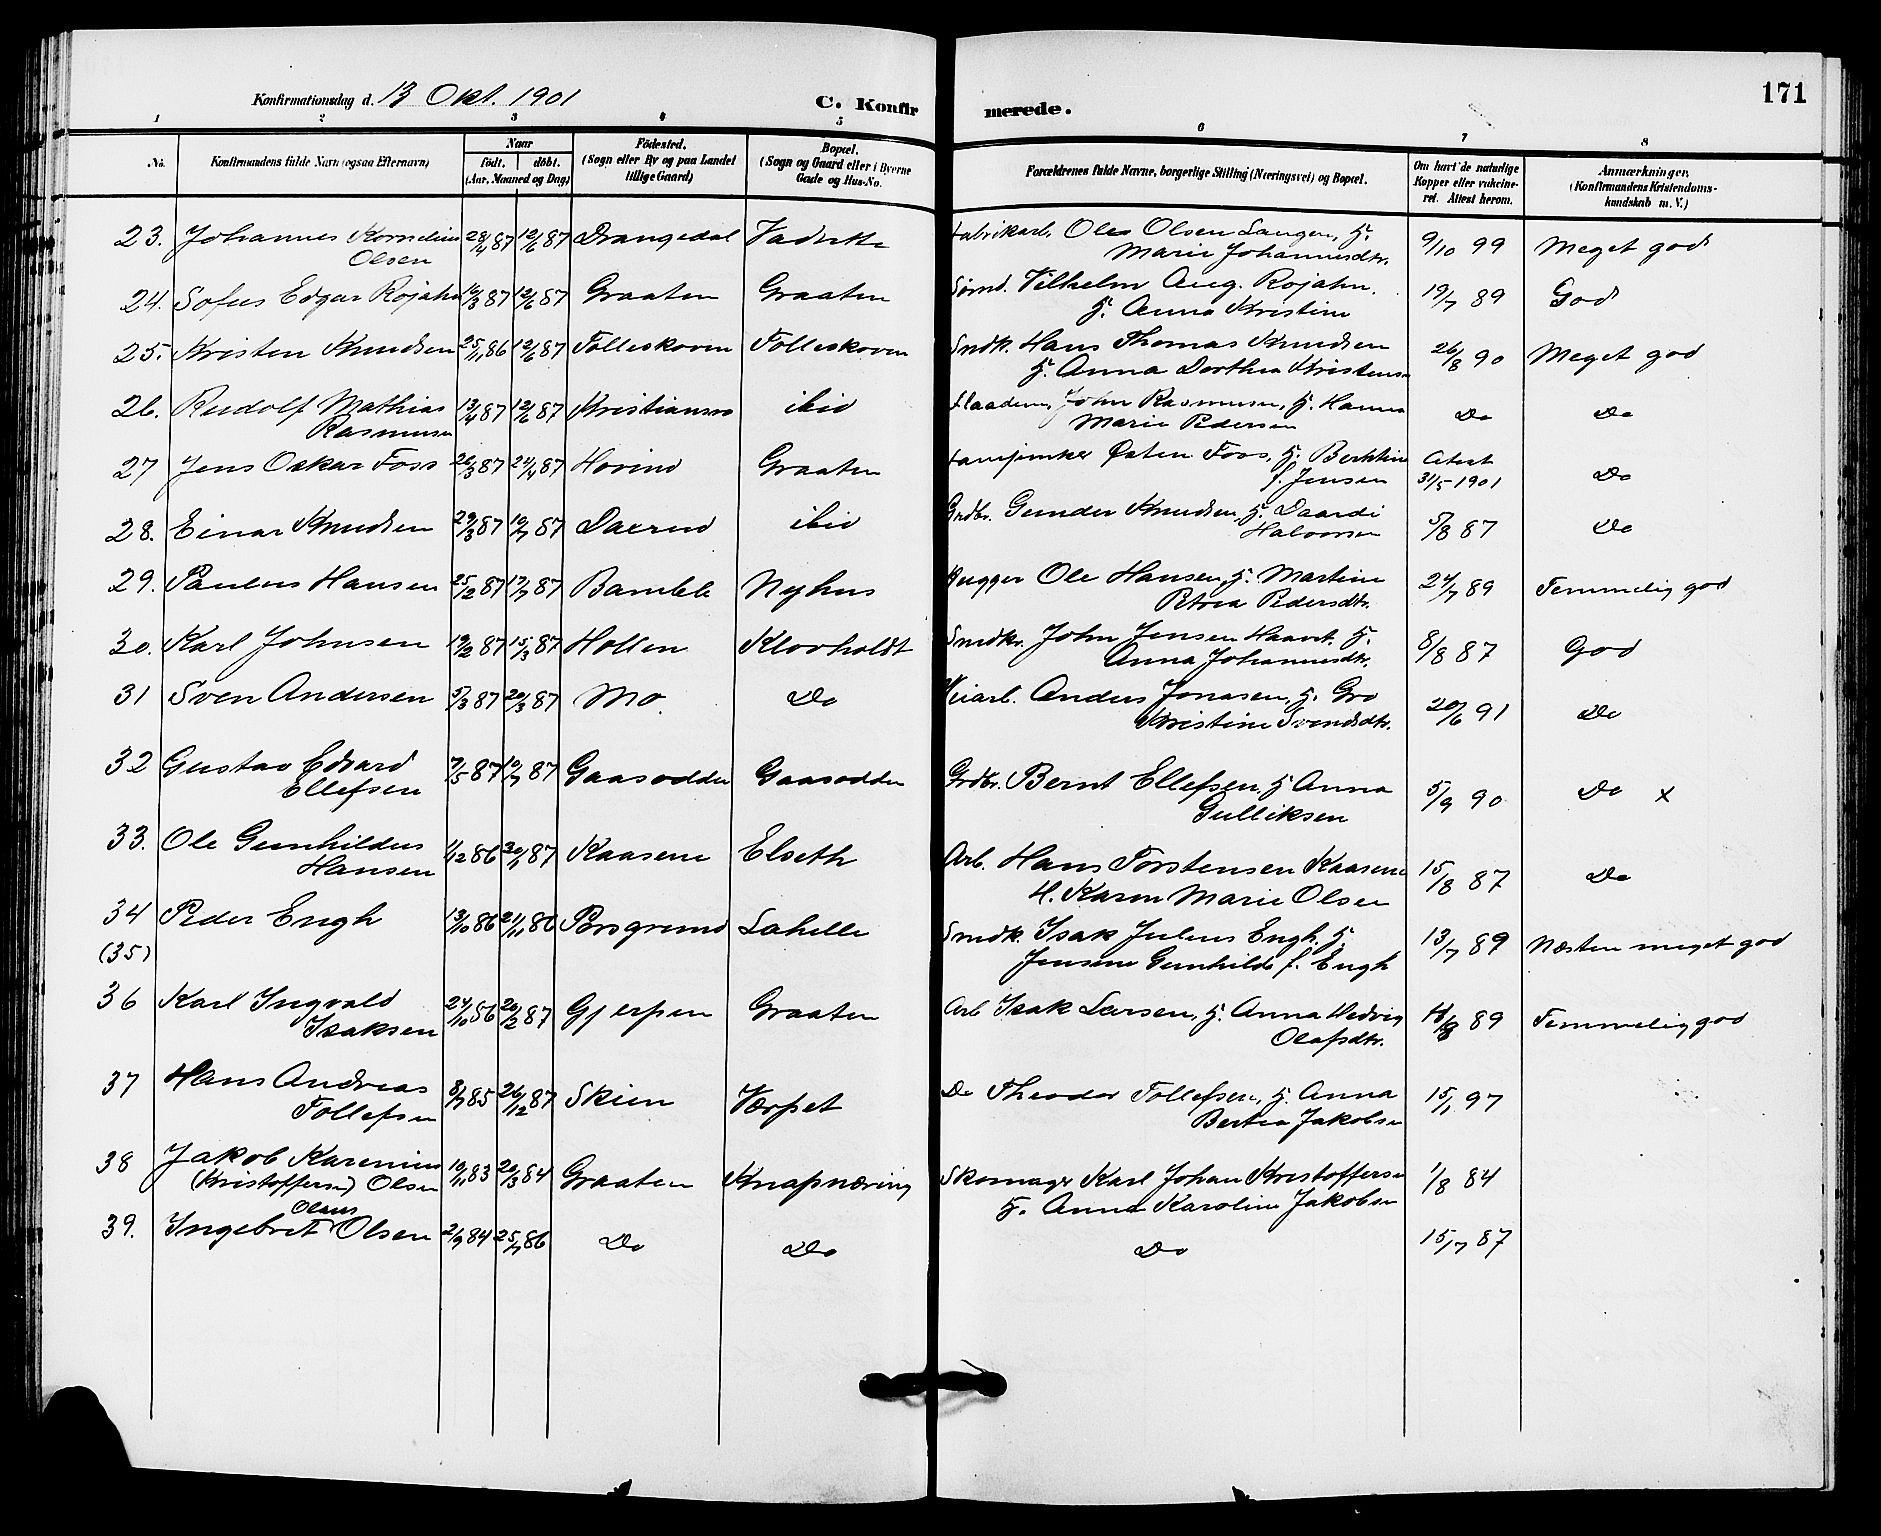 171
Konfirmationsdag d. 13 Okt. 1901
C. Konfir merede.
1 2 3 4 5 6 7 8
No. Konfirmandens fulde Navn (ogsaa Efternavn) Naar födt. döbt. (Aar, Maaned og Dag) Födested. (Sogn eller By og paa Landet tillige Gaard) Bopæl. (Sogn og Gaard eller i Byerne Gade og Hus-No. Forældrenes fulde Navne, borgerlige Stilling (Næringsvei) og Bopæl. Om havt de naturlige Kopper eller vakcineret. Attest herom. Anmærkninger. (Konfirmandens Kristendomskundskab m. V.)
23. Johannes Kornelius 28/4 87 12/6 87 Drangedal Fabrikarb. Ole Olsen Langen, H. 9/10 99 Meget god
Olsen Marie Johannesdtr.
24. Sofus Edgar Rojahn 16/3 87 12/6 87 Graaten Graaten Sømd. Vilhelm Aug. Rojahn. 19/7 89 God
H. Anna Kristine
25. Kristen Knudsen 25/11 86 12/6 87 Folleskoven Folleskoven Smdk. Hans Thomas Knudsen 26/8 90 Meget god
H. Anna Dorthea Kristensen
26. Rudolf Mathias 13/4 87 12/6 87 ibid John Rasmussen, H. Hanna Do Do
Rasmussen Marie Pedersen
27 Jens Oskar Foss 26/3 87 24/4 87 Hovind Graaten Østen Foss, H. Atest Do
f. Jensen 31/5 1901
28. Einar Knudsen 29/3 87 10/7 87 ibid Grdbr. Gunder Knudsen, H. 5/8 87 Do
Halvorsen
29. Paulus Hansen 25/2 87 17/7 87 Bamble Nyhus Ole Hansen, H. Martine 24/7 89 Temmelig god
Petrea Pedersdtr.
30. Karl Johnsen 19/2 87 15/3 87 Hollen Klovholdt Smdk. John Jensen H. 8/8 87 God
Anna Johannesdtr.
31 Sven Andersen 5/3 87 20/3 87 Mo Do Veiarb. Anders Jonasen, H. Gro 20/6 91 Do
Kristine Svendsdtr.
32 Gustav Edvard 7/5 87 10/7 87 Gaasodden Gaasodden Grdbr. Bernt Ellefsen, H Anna 5/9 90 Do x
Ellefsen Gulliksen
33. Ole Gunhildus 1/12 86 30/1 87 Kaasene Elseth Arb. Hans Torstensen Kaasene 15/8 87 Do
Hansen H. Karen Marie Olsen
34 Peder Engh 13/10 86 21/11 86 Porsgrund Lahelle Smdk. Isak Julius Engh. H. 13/7 89 Næsten meget god
(35) Jensine Gunhilde f. Engh
36 Karl Ingvald 24/10 86 20/2 87 Gjerpen Graaten Arb Isak Larsen, H. Anna Hedvig 89 Temmelig god
Isaksen Olafsdtr.
37 Hans Andreas 85 26/12 87 Skien Værpet Do Theodor Tollefsen, H. Anna 15/1 97
Tollefsen Bertea Jakobsen
38 Jakob Karenius 10/11 83 20/3 84 Graaten Knapnæring Skomager Karl Johan Kristoffersen 1/8 84
(Kristoffersen) Olsen H. Anna Karoline Jakobsen
Olaus
39. Ingebret Olsen 2/9 84 25/7 86 Do Do Do 15/7 87